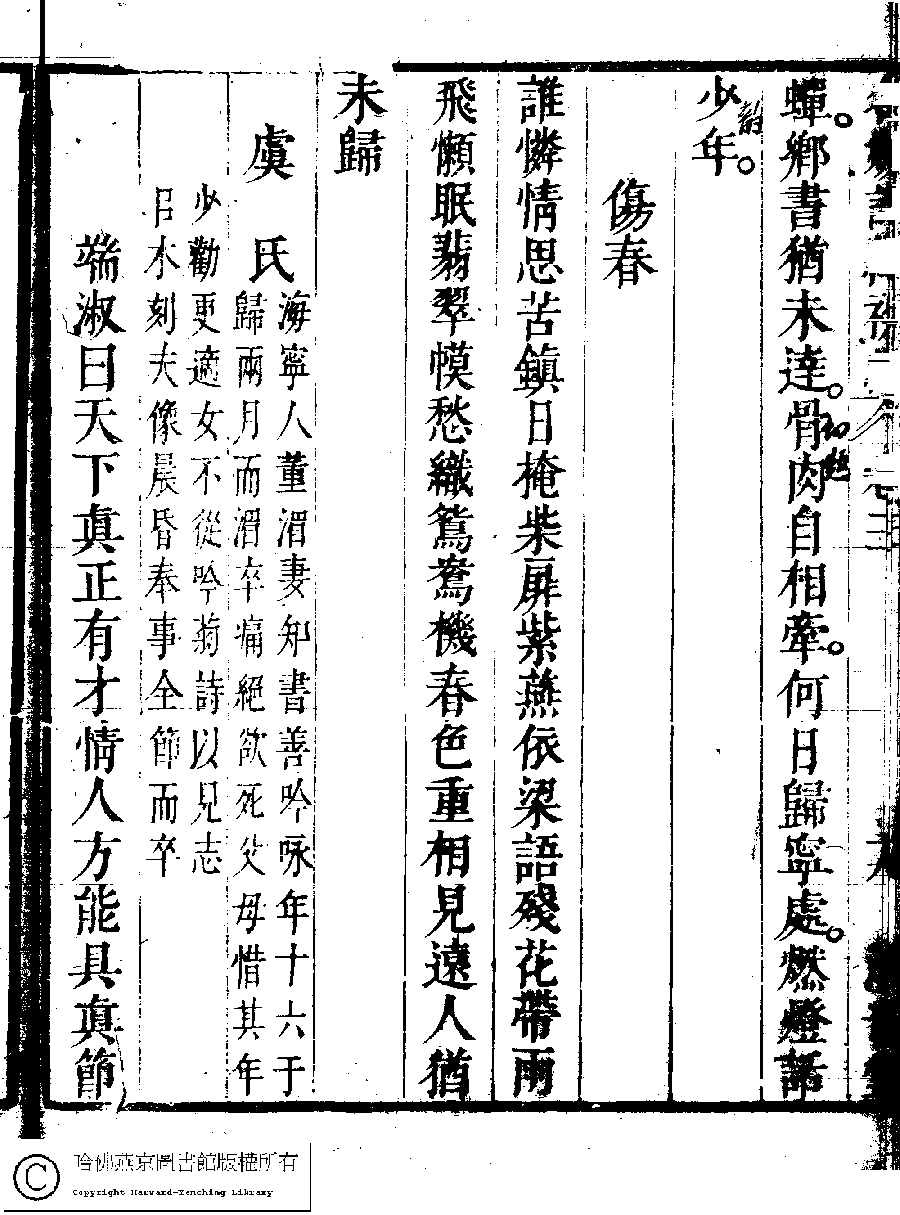 蟬鄉書猶未達骨肉自相牽何日歸寧處燃燈話
少年
傷春
誰憐情思苦鎮日掩柴扉紫燕依梁語殘花帶雨
飛懶眠翡翠幙愁織鴛鴦機春色重相見遠人猶
未歸
虞氏
海寧人董湄妻知書善吟咏年十六于
歸兩月而湄卒痛絕欲死父母惜其年
少勸更適女不從吟菊詩以見志
日木刻夫像晨昏奉事全節而卒
端淑曰天下真正有才情人方能具真節
哈佛燕京圖書館版權所有
Copyright Harvard-Yenching Library